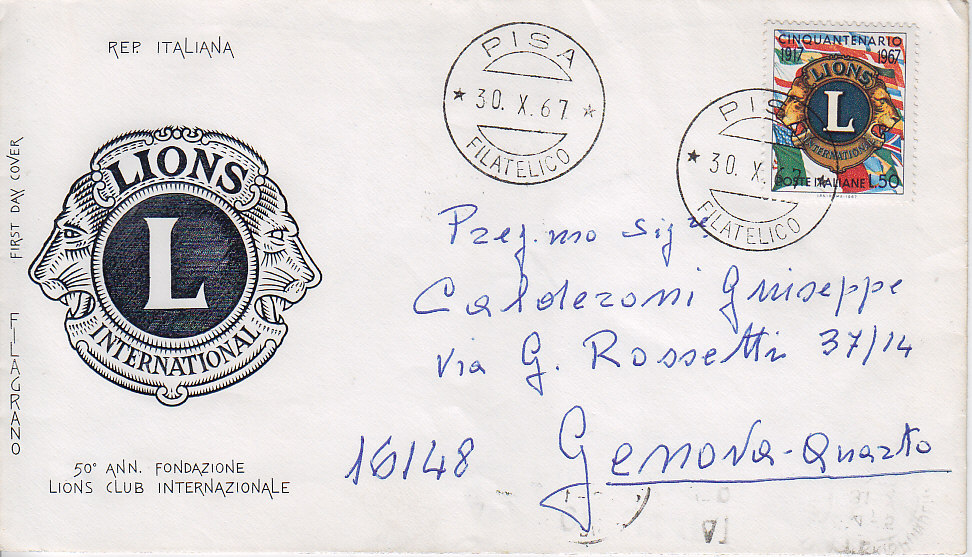 REP. ITALIANA
FIRST DAY COVER
FILAGRANO
LIONS
L
INTERNATIONAL
50° ANN. FONDAZIONE
LIONS CLUB INTERNAZIONALE
PISA
* 30. X. 67. *
FILATELICO
CINQUANTENARIO
1917 1967
LIONS
L
INTERNATIONAL
POSTE ITALIANE L.50
PISA
* 30. X. 67 *
FILATELICO
Preg.mo Sig.re
Calderoni Giuseppe
Via G. Rossetti 37/14
16148 Genova-Quarto